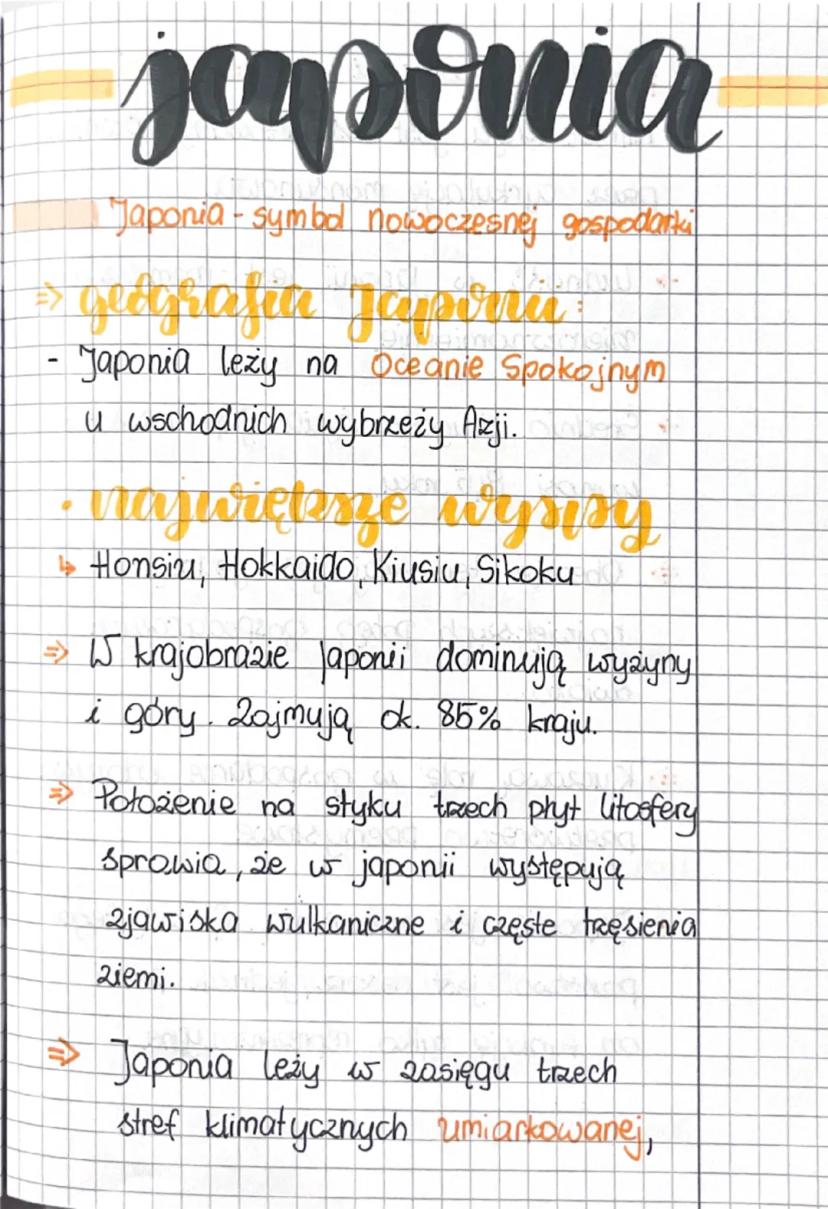 japonia
Japonia - symbol nowoczesnej gospodarki
⇒ geografia Japonii:
- Japonia leży na Oceanie Spokojnym
u wschodnich wybrzeży Azji.
• największe wyspy
↳ Honsiu, Hokkaido, Kiusiu, Sikoku
⇒ W krajobrazie Japonii dominują wyżyny
i góry. Zajmują ok. 85% kraju.
⇒ Położenie na styku trzech płyt litosfery
sprawia, że w japonii występują
zjawiska wulkaniczne i częste trzęsienia
ziemi.
⇒ Japonia leży w zasięgu trzech
stref klimatycznych umiarkowanej,